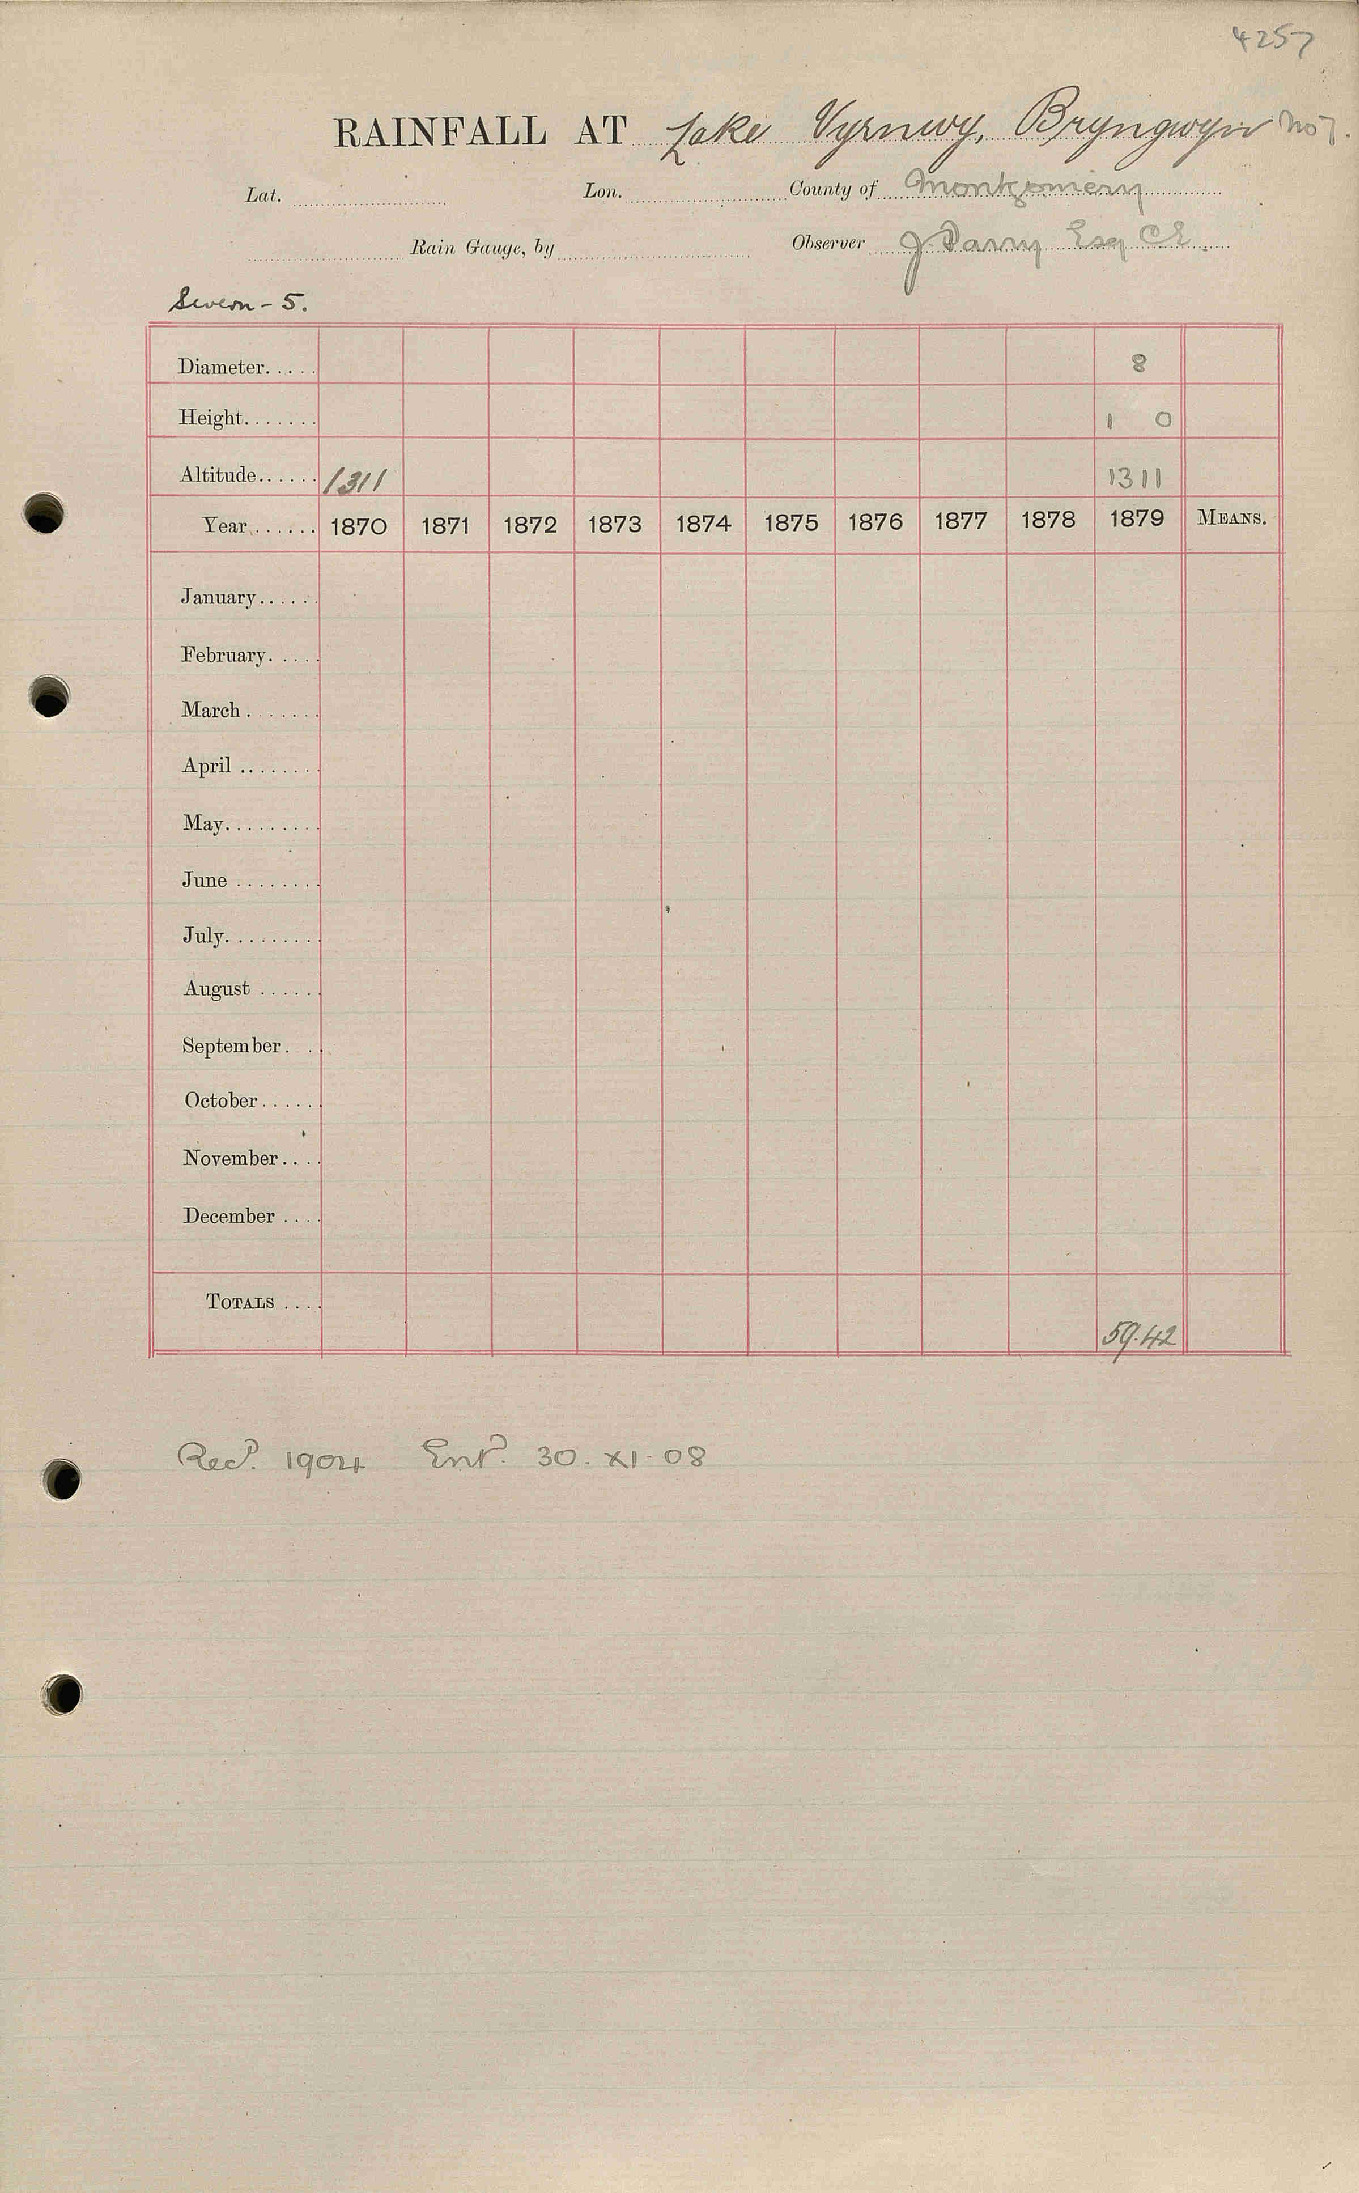 4257
RAINFALL AT Lake Vyrnwy, Bryngwyn No 7.
Lat. Lon. County of Montgomery
Rain Gauge, by Observer J. Parry Esq CE.
Severn - 5.
Diameter. 8
Height. 1 0
Altitude. 1311 1311
Year. 1870 1871 1872 1873 1874 1875 1876 1877 1878 1879 MEANS.
January
February
March
April
May
June
July
August
September
October
November
December
TOTALS 59.42
Recd. 1904 Entd. 30. XI. 08